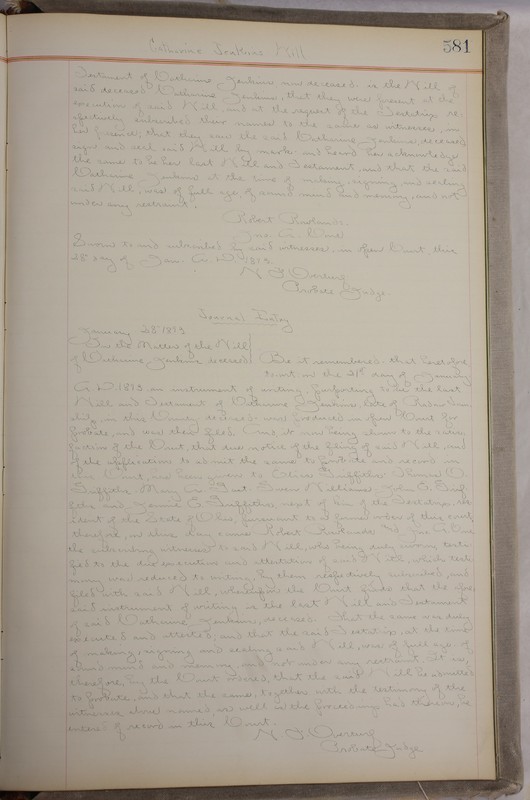 581
Catharine Jenkins Will
Testament of Catharine Jenkins now deceased is the Will of
said deceased Catharine Jenkins, that they were present at the
execution of said Will and at the request of the Testatrix re-
spectively subscribed their names to the same as witnesses, in
her presence, that they saw the said Catharine Jenkins deceased
sign and seal said Will by mark and heard her acknowledge
the same to be her last Will and Testament, and that the said
Catharine Jenkins at the time of making, signing and sealing
said Will, was of full age, of sound mind and memory, and not
under any restraint.
Robert
Sworn to and subscribed by said witnesses in open Court this
28 day of Jan. A.D.
Probate Judge.
Journal Entry
January 28
In the Matter of the Will
of Catharine Jenkins deceased Be it remembered that heretofore
to wit on the 21st day of January
A.D. an instrument of writing purporting to be the last
Will and Testament of Catharine Jenkins, late of
in this County deceased was produced in open Court for
probate, and was then filed. And it now being shown to the satis-
faction of the Court, that due notice of the filing of said Will, and
of the application to admit the same to probate and record in
this Court, has been given to Griffiths
Griffiths Mary Williams John Grif-
fiths and Griffiths, next of kin of the Testatrix, res-
ident of the State of Ohio, pursuant to a former order of this court,
therefore, on this day came Robert
the subscribing witnesses to said Will, who being duly sworn testi-
fied to the due execution and attestation of said Will, which testi-
mony was reduced to writing, by them respectively subscribed, and
filed with said Will, whereupon the Court finds that the afore
said instrument of writing is the last Will and Testament
of said Catharine Jenkins, deceased. That the same was duly
executed and attested, and that the said Testatrix, at the time
of making, signing and sealing said Will, was of full age, of
sound mind and memory, and not under any restraint. It is,
therefore, by the Court ordered, that the said Will be admitted
to probate, and that the same, together with the testimony of the
witnesses above named, as well as the proceedings had therein, be
entered of record in this Court.
Probate Judge